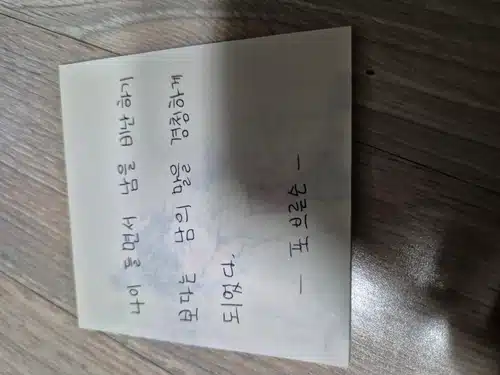 나이 들면서 남을 비난하기
보다는 남의 말을 경청하게
되었다.
— 포브르손 —